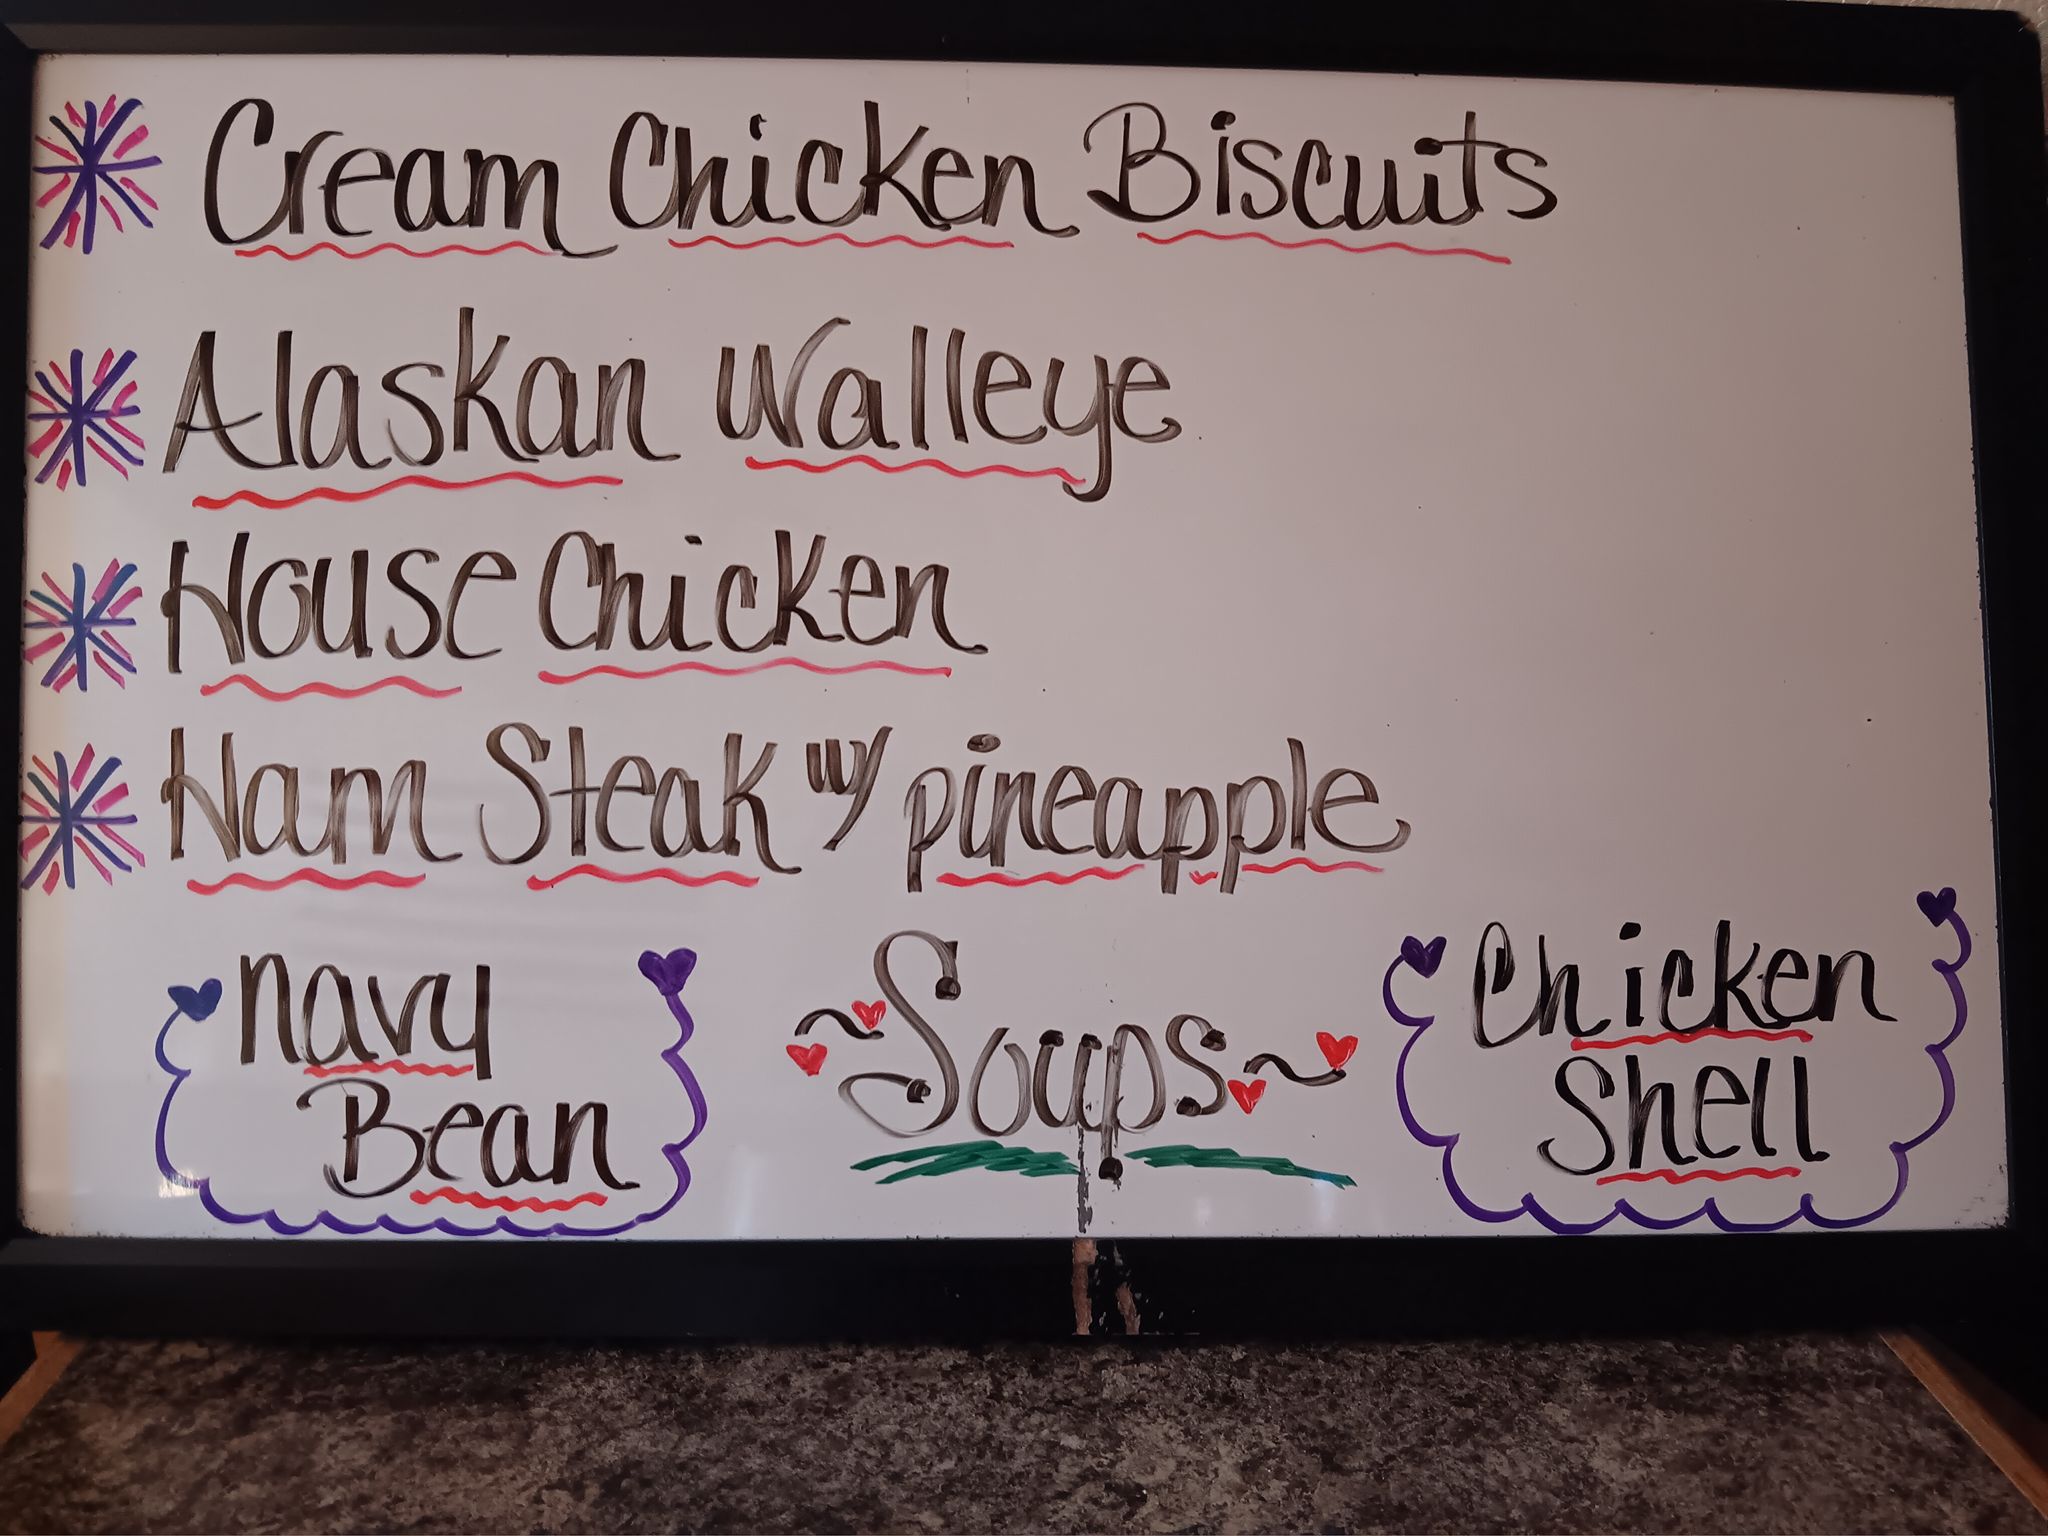 Cream Chicken Biscuits
Alaskan Walleye
House Chicken
Ham Steak w/ pineapple
Navy
Bean
~Soups~
Chicken
Shell